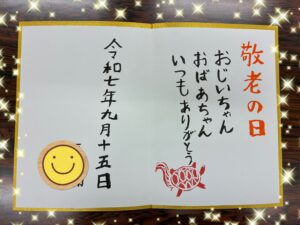 敬老の日
おじいちゃん
おばあちゃん
いつもありがとう
令和七年九月十五日